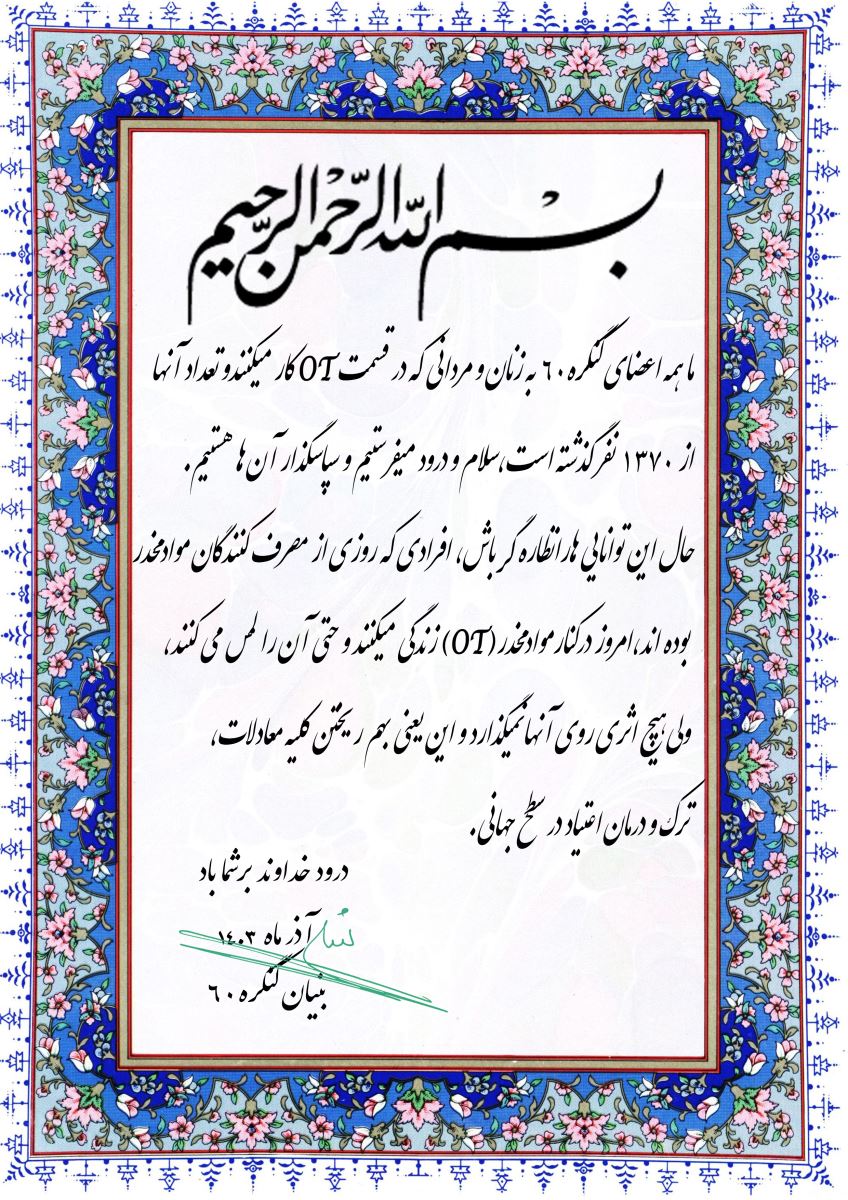 بسم الله الرّحمن الرّحیم
ما همه اعضای کنگره ۶۰ به زنان و مردانی که در قسمت OT کار میکنندو تعداد آنها
از ۱۳۷۰ نفر گذشته است،سلام و درود میفرستیم و سپاسگذار آن ها هستیم.
حال این توانایی هارانظاره گر باش، افرادی که روزی از مصرف کنندگان موادمخدر
بوده اند،امروز درکنار موادمخدر (OT) زندگی میکنند و حتی آن را لمس می کنند،
ولی هیچ اثری روی آنها نمیگذارد و این یعنی بهم ریختن کلیه معادلات،
ترک و درمان اعتیاد در سطح جهانی.
درود خداوند بر شما باد
آذر ماه ۱۴۰۳
بنیان کنگره ۶۰